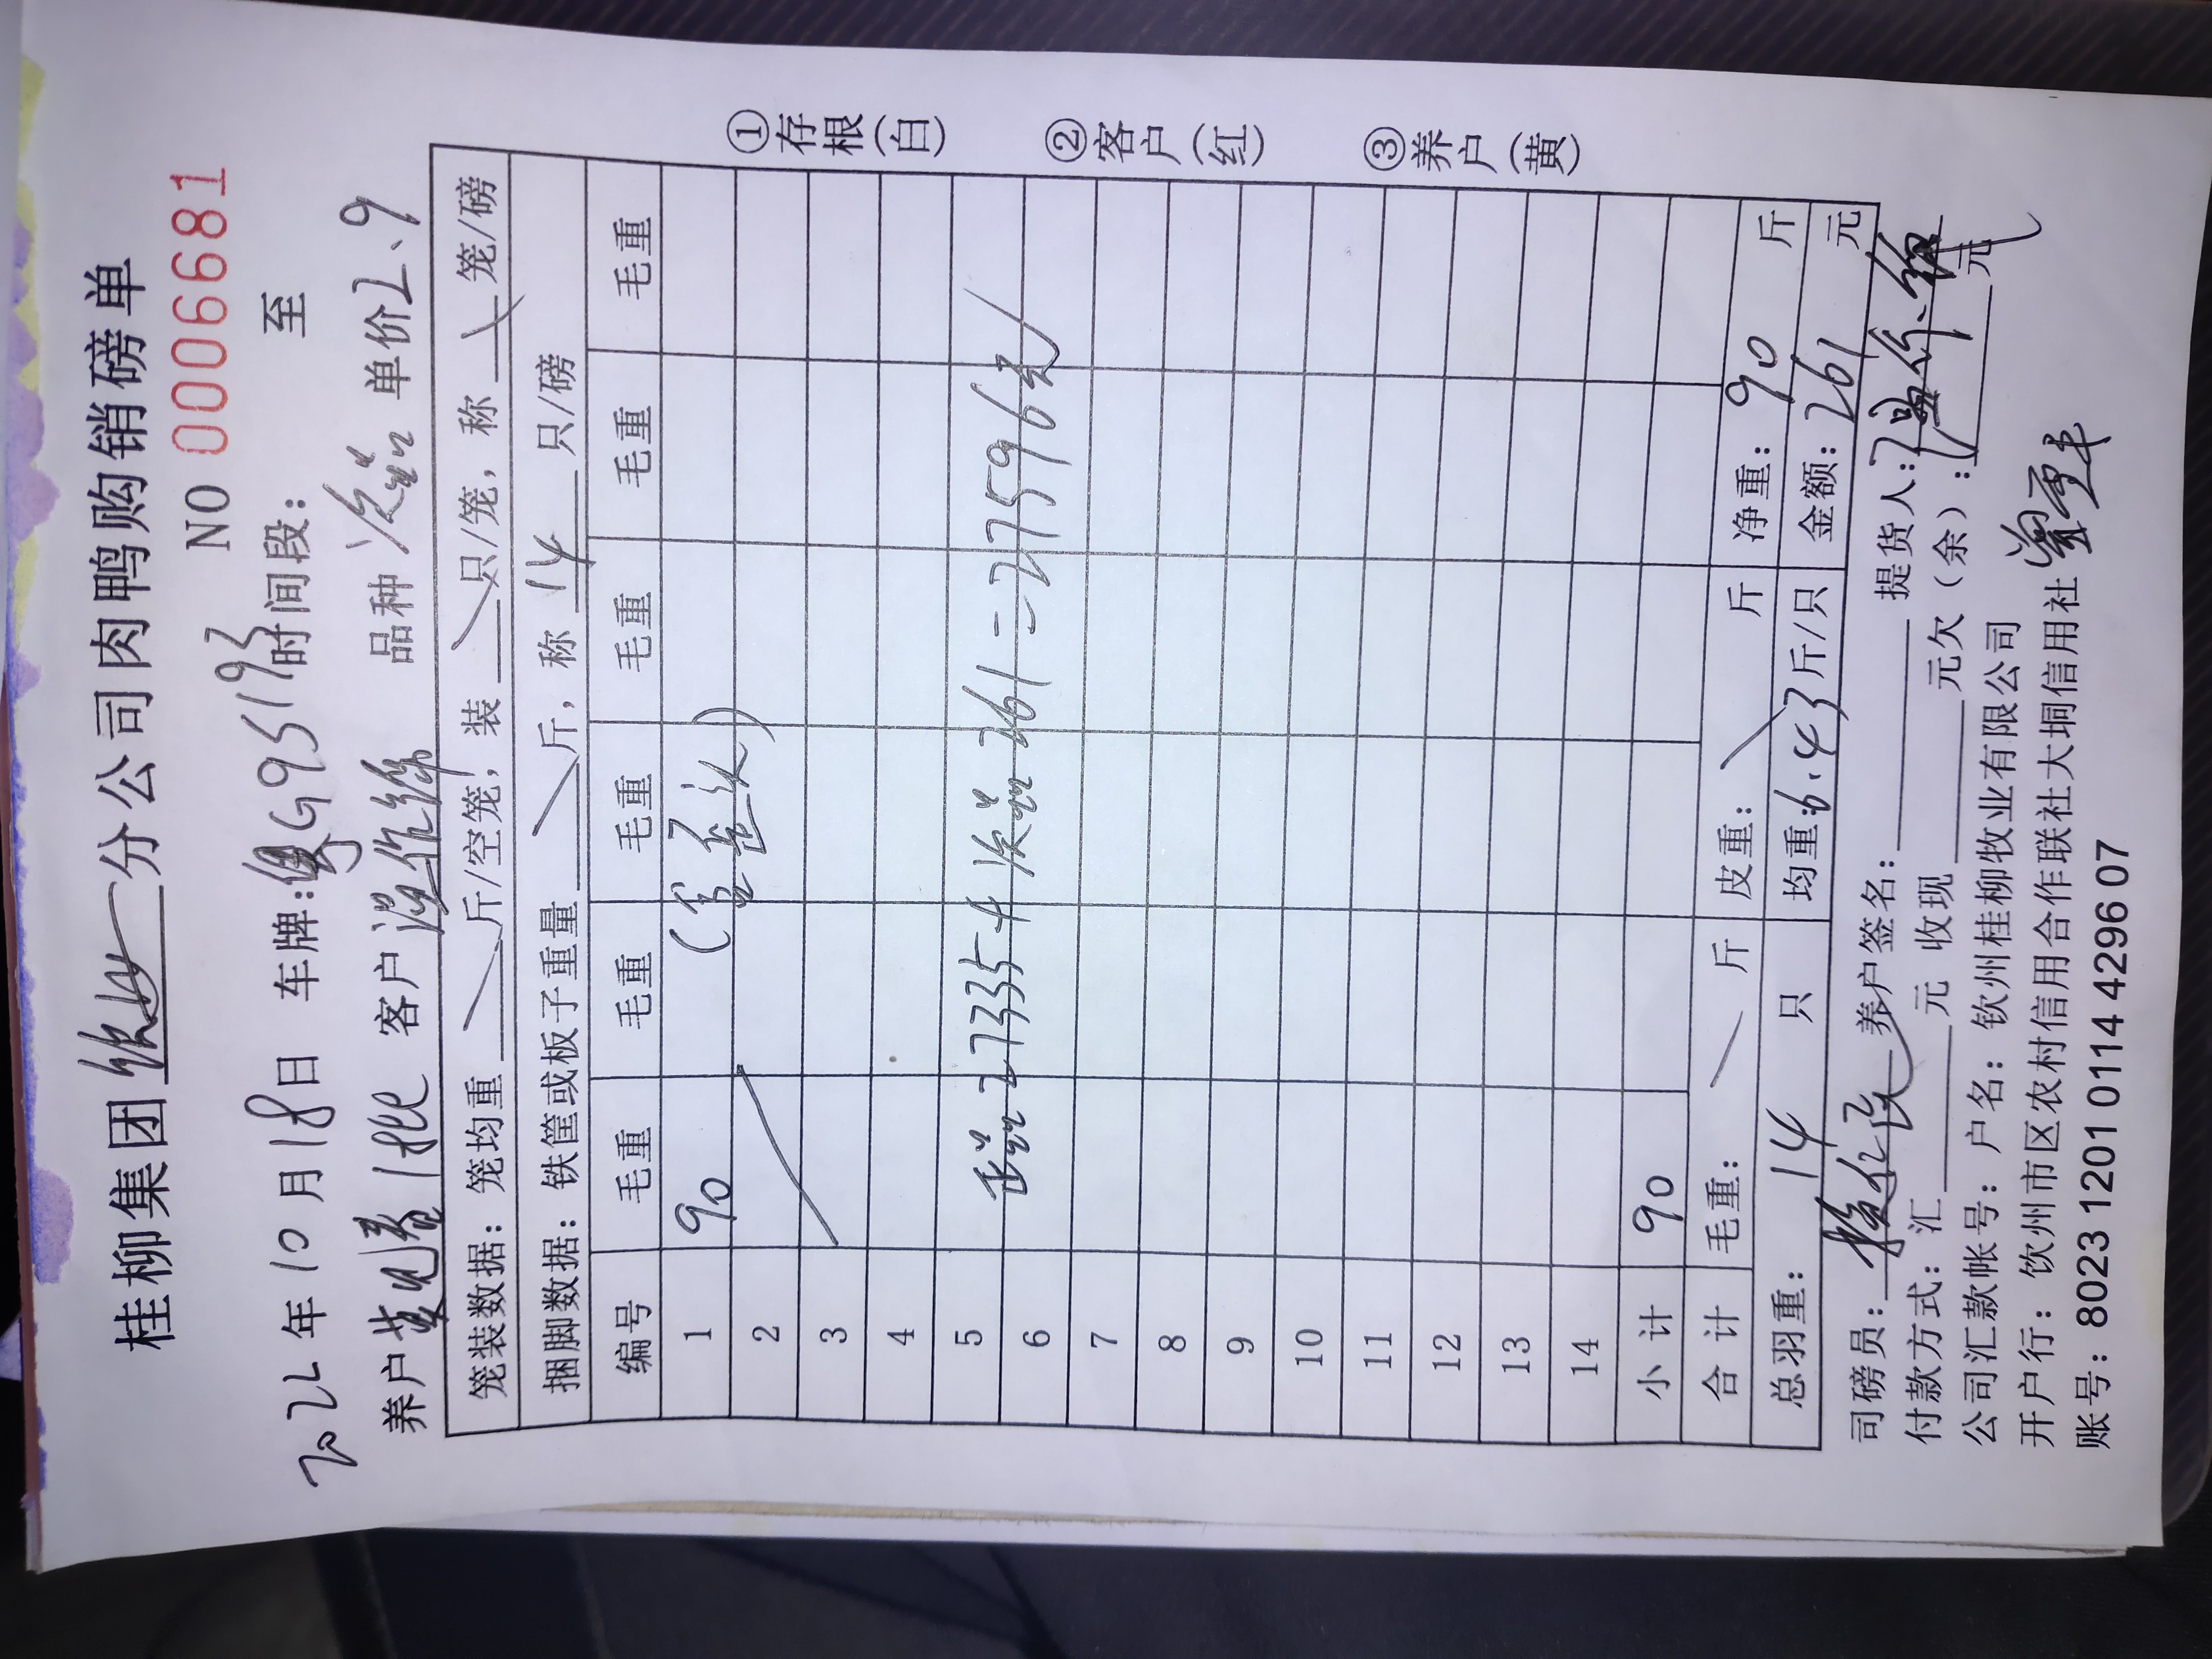 桂柳集团钦州分公司肉鸭购销磅单
NO 0006681
2022年10月18日 车牌:粤G95193 时间段: 至
养户 1批 客户 温作 品种 次品 单价2.9
笼装数据: 笼均重 斤/空笼, 装 只/笼, 称 笼/磅
捆脚数据: 铁筐或板子重量 斤, 称 14 只/磅
编号 毛重 毛重 毛重 毛重 毛重 毛重
1 90 (全歪头)
2
3
4
5 正品27335+次品261=27596元
6
7
8
9
10
11
12
13
14
小计 90
合计 毛重: 斤 皮重: 斤 净重: 90 斤
总羽重: 14 只 均重: 6.43 斤/只 金额: 261 元
司磅员: 养户签名: 提货人:
付款方式: 汇 元 收现 元欠(余): 元
公司汇款帐号: 户名: 钦州桂柳牧业有限公司
开户行: 钦州市区农村信用合作联社大垌信用社
账号: 8023 1201 0114 4296 07
①存根(白) ②客户(红) ③养户(黄)